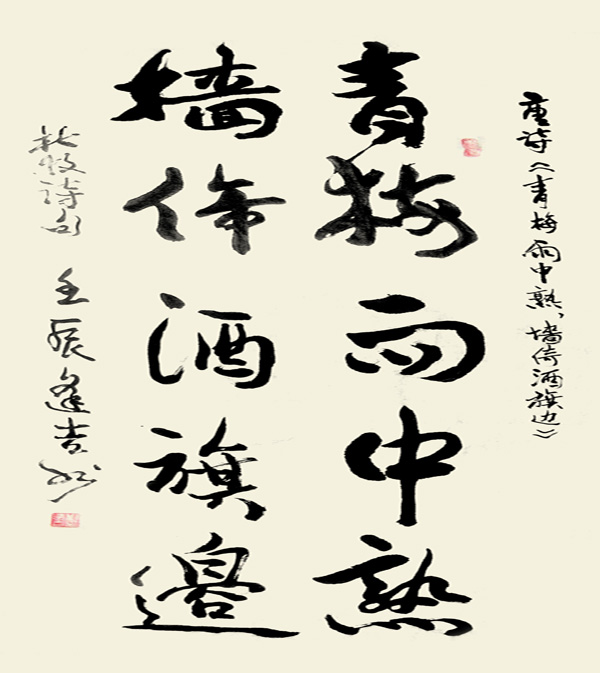 唐诗《青梅雨中熟，墙倚酒旗边》
青梅雨中熟
墙倚酒旗邊
杜牧诗句 壬辰逢吉